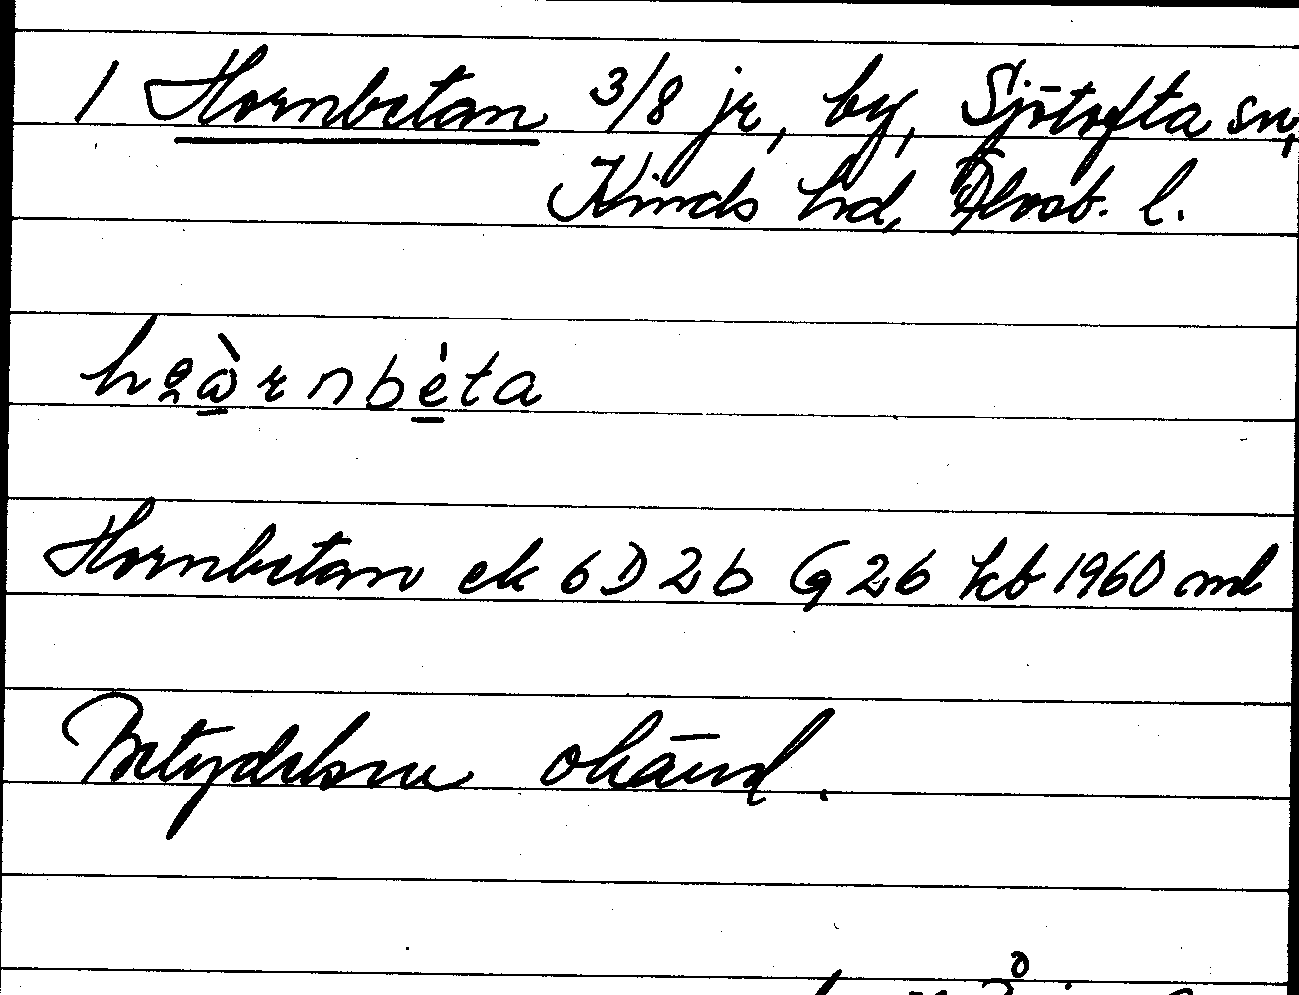 1 Hornbetan 3/8 jr, by, Sjötofta sn,
Kinds hd, Älvsb. l.
Hornbetan ek 6D2b G26 kb 1960 ml
Betydelsen okänd.